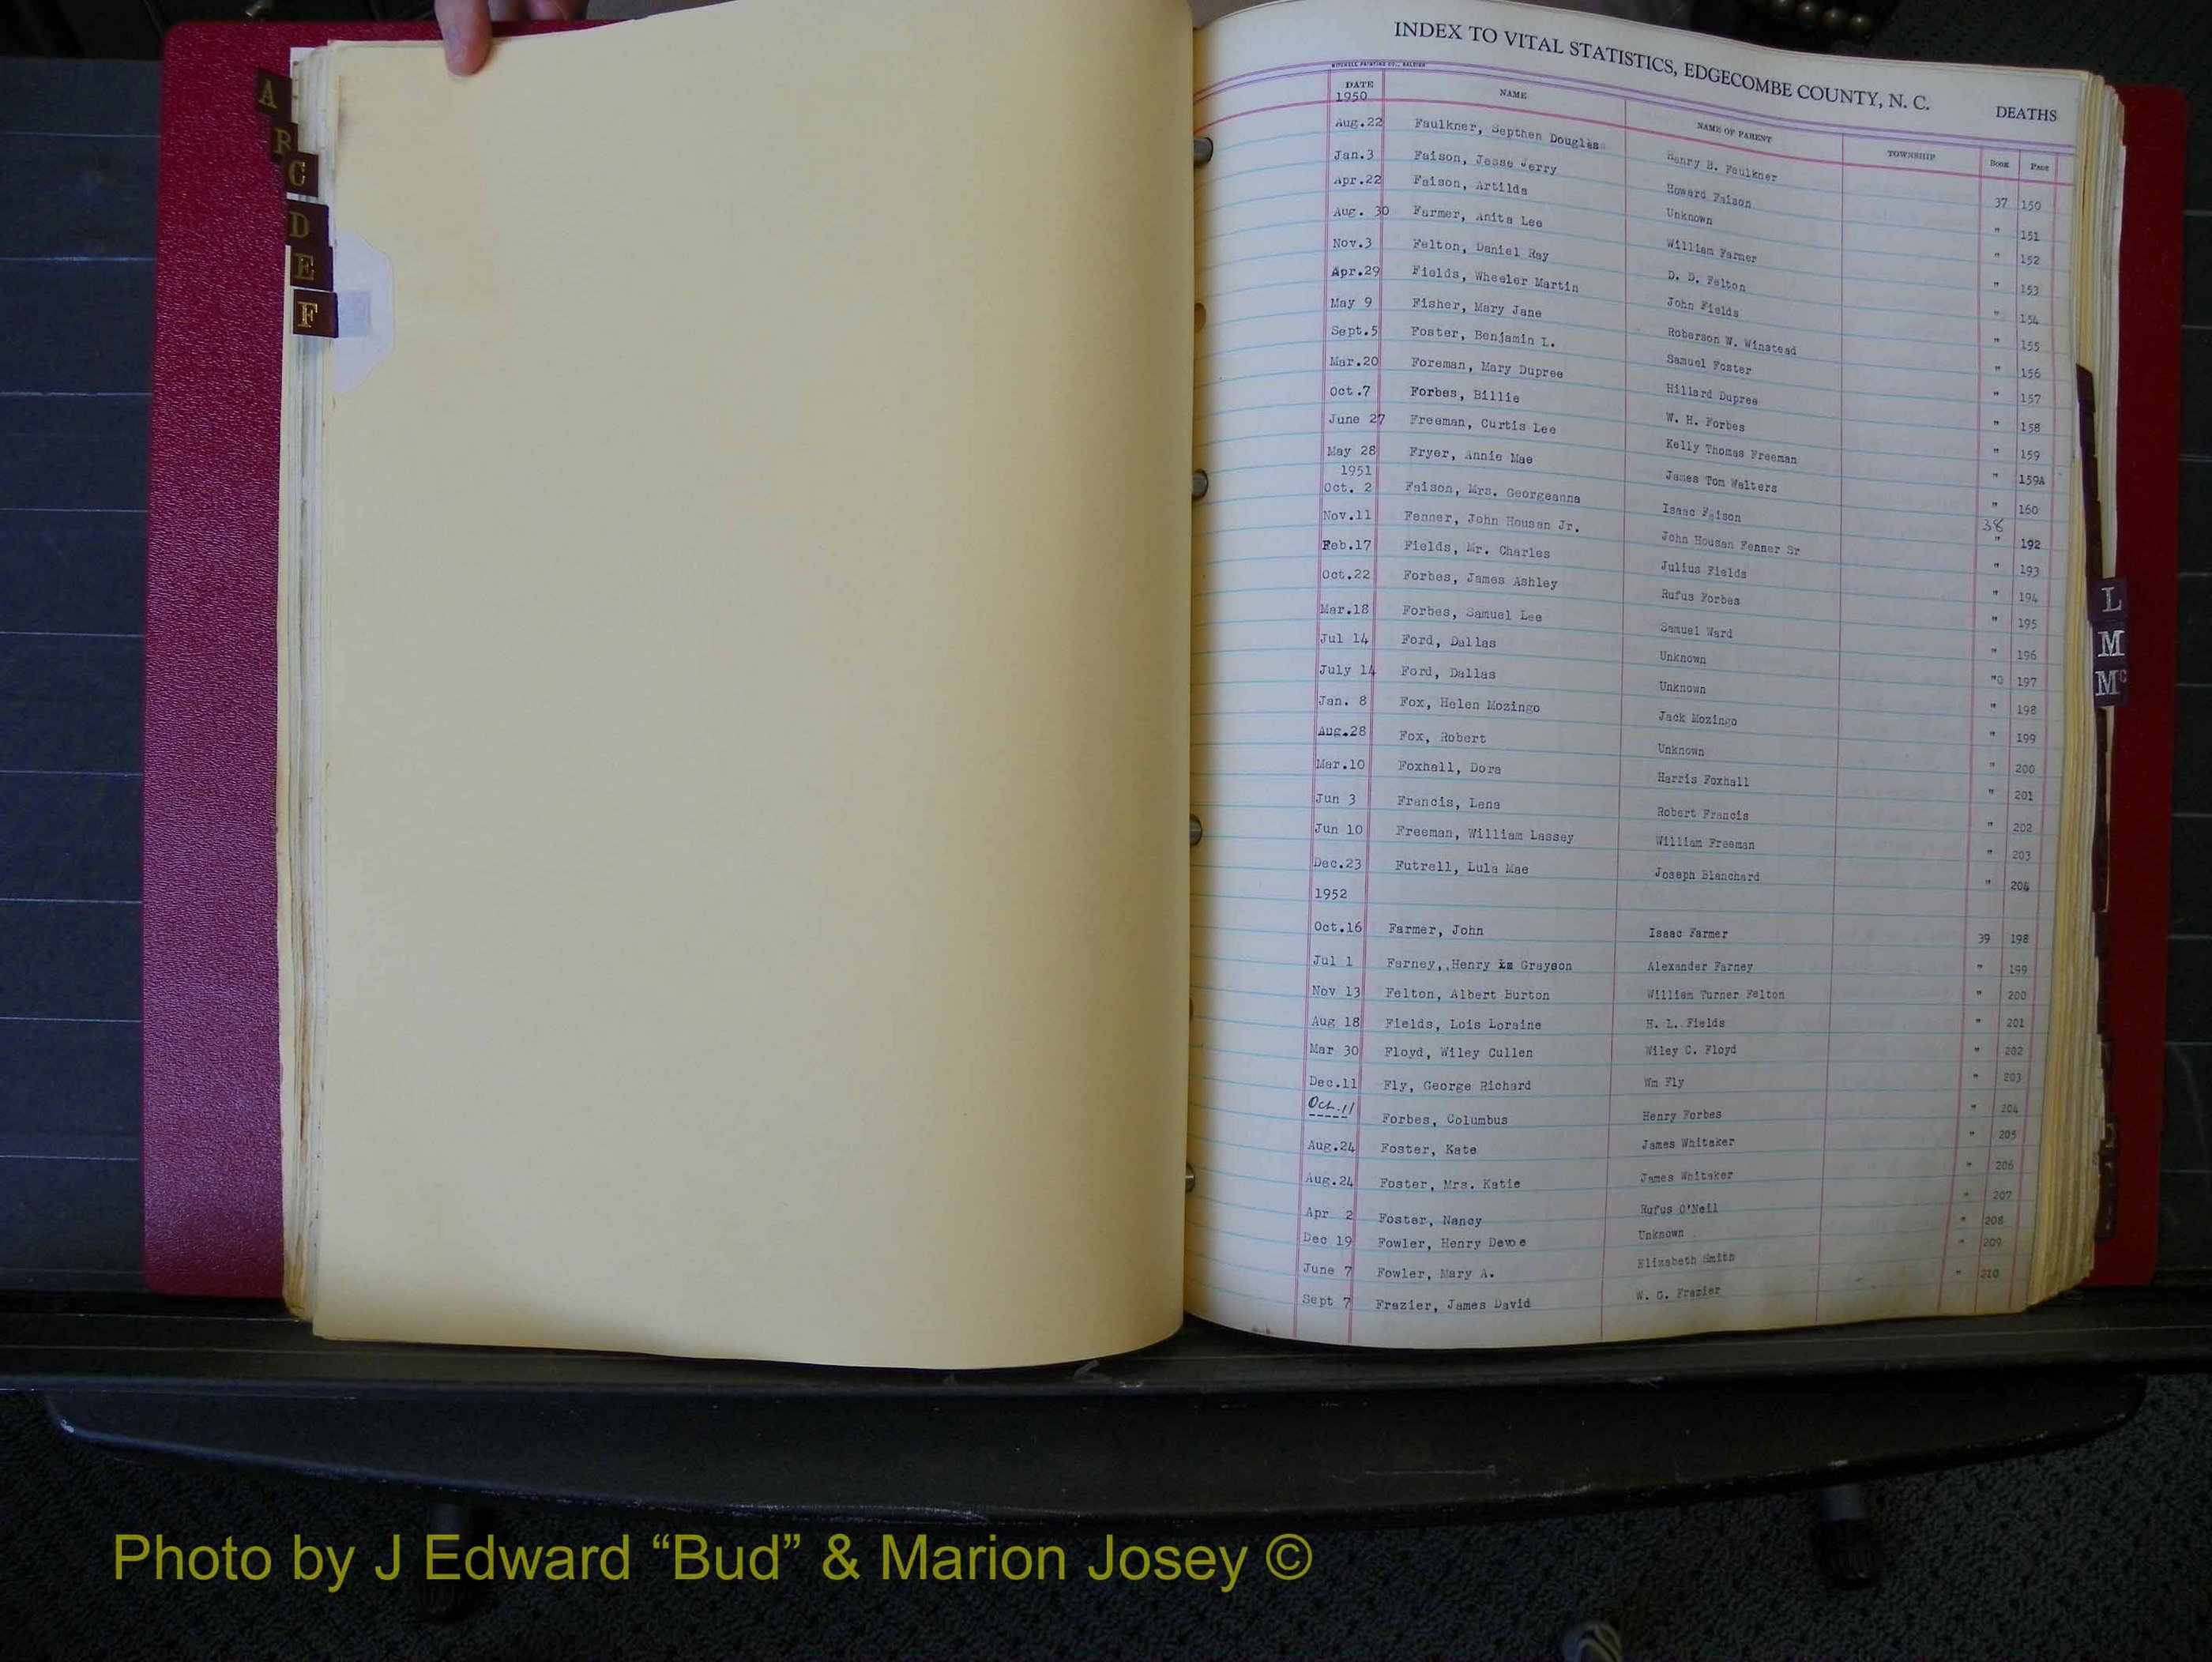 A
B
C
D
E
F
INDEX TO VITAL STATISTICS, EDGECOMBE COUNTY, N. C. DEATHS
MITCHELL PRINTING CO., RALEIGH
DATE NAME NAME OF PARENT TOWNSHIP BOOK PAGE
1950
Aug.22 Faulkner, Septhen Douglas Henry B. Faulkner 37 150
Jan.3 Faison, Jesse Jerry Howard Faison " 151
Apr.22 Faison, Artilda Unknown " 152
Aug. 30 Farmer, Anita Lee William Farmer " 153
Nov.3 Felton, Daniel Ray D. D. Felton " 154
Apr.29 Fields, Wheeler Martin John Fields " 155
May 9 Fisher, Mary Jane Roberson W. Winstead " 156
Sept.5 Foster, Benjamin L. Samuel Foster " 157
Mar.20 Foreman, Mary Dupree Hillard Dupree " 158
Oct.7 Forbes, Billie W. H. Forbes " 159
June 27 Freeman, Curtis Lee Kelly Thomas Freeman " 159A
May 28 Fryer, Annie Mae James Tom Walters " 160
1951
Oct. 2 Faison, Mrs. Georgeanna Isaac Faison 38 " 192
Nov.11 Fenner, John Housan Jr. John Housan Fenner Sr " 193
Feb.17 Fields, Mr. Charles Julius Fields " 194
Oct.22 Forbes, James Ashley Rufus Forbes " 195
Mar.18 Forbes, Samuel Lee Samuel Ward " 196
Jul 14 Ford, Dallas Unknown "0 197
July 14 Ford, Dallas Unknown " 198
Jan. 8 Fox, Helen Mozingo Jack Mozingo " 199
Aug.28 Fox, Robert Unknown " 200
Mar.10 Foxhall, Dora Harris Foxhall " 201
Jun 3 Francis, Lena Robert Francis " 202
Jun 10 Freeman, William Lassey William Freeman " 203
Dec.23 Futrell, Lula Mae Joseph Blanchard " 204
1952
Oct.16 Farmer, John Isaac Farmer 39 198
Jul 1 Farney,.Henry Grayson Alexander Farney " 199
Nov 13 Felton, Albert Burton William Turner Felton " 200
Aug 18 Fields, Lois Loraine H. L. Fields " 201
Mar 30 Floyd, Wiley Cullen Wiley C. Floyd " 202
Dec.11 Fly, George Richard Wm Fly " 203
Oct.11 Forbes, Columbus Henry Forbes " 204
Aug.24 Foster, Kate James Whitaker " 205
Aug.24 Foster, Mrs. Katie James Whitaker " 206
Apr 2 Foster, Nancy Rufus O'Neil " 207
Dec 19 Fowler, Henry Devoe Unknown " 208
June 7 Fowler, Mary A. Elizabeth Smith " 209
Sept 7 Frazier, James David W. G. Frazier " 210
L
M
Mc
Photo by J Edward “Bud” & Marion Josey ©